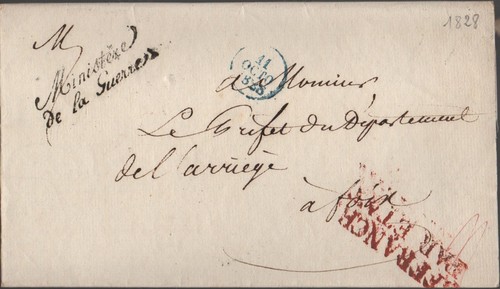 1828
M
Ministère
de la Guerre
11
OCTO
1828
a Monsieur
Le Préfet du Département
de l'arriège
a foix
FRANCHISE
PAR ETAT